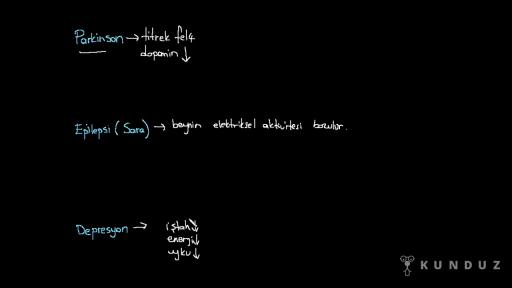 Parkinson → titrek felç
dopamin ↓
Epilepsi (Sara) → beynin elektriksel aktivitesi bozulur.
Depresyon → iştah ↓
enerji ↓
uyku ↓
KUNDUZ